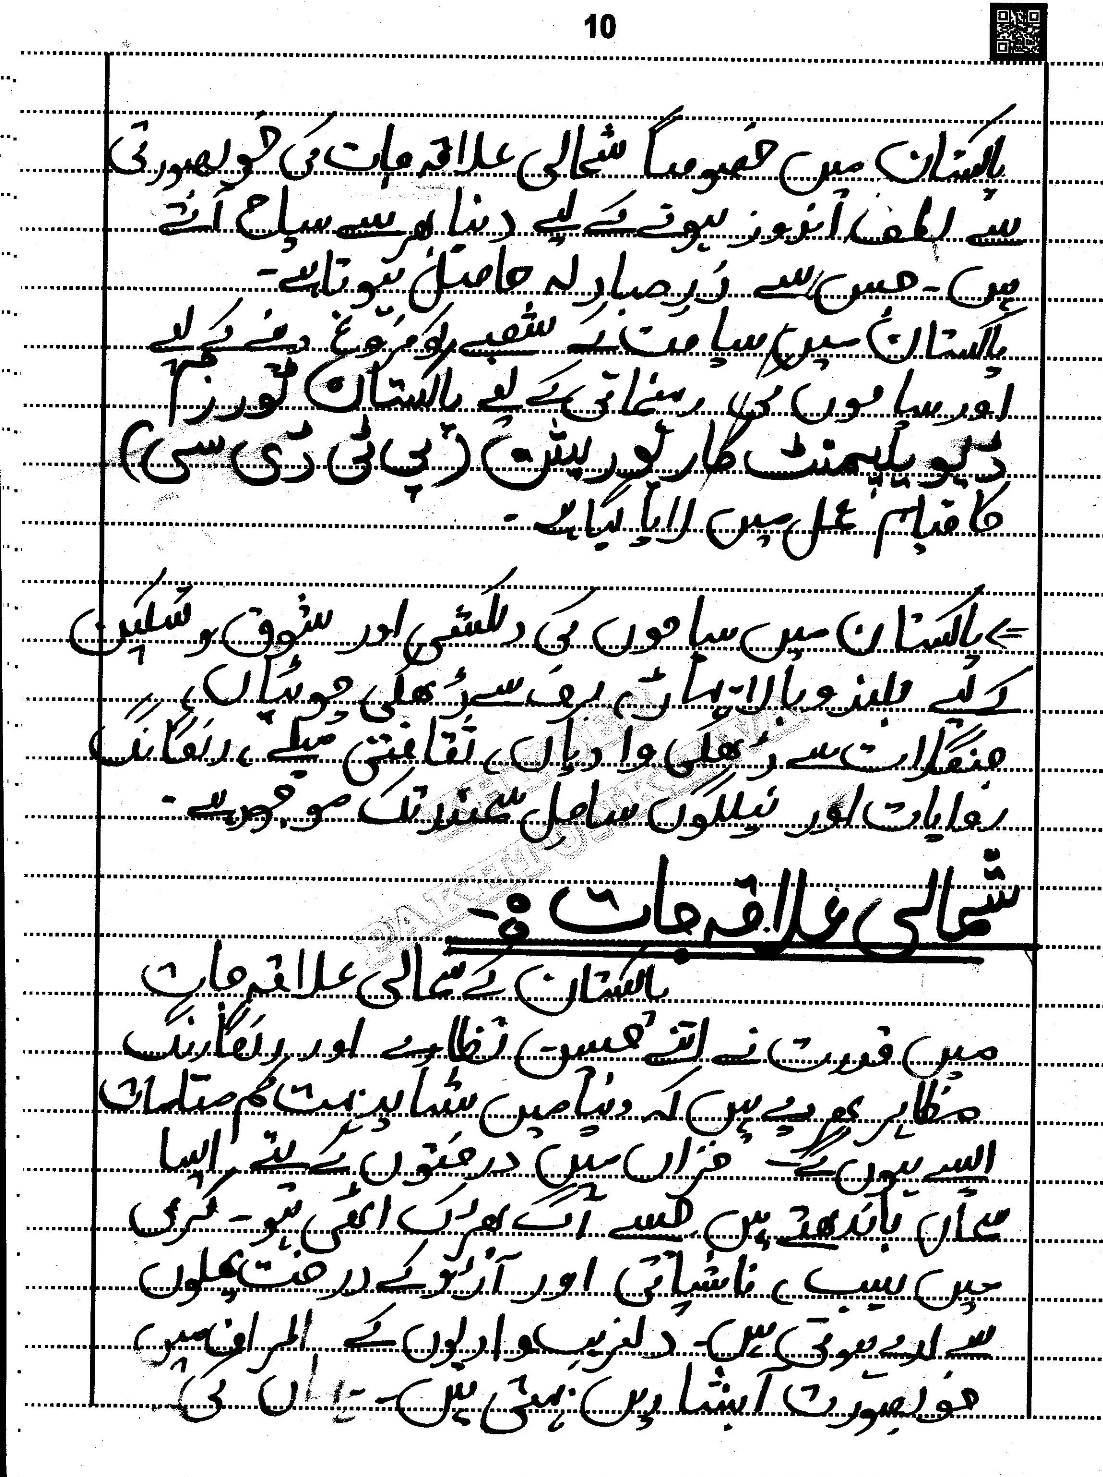 10
پاکستان میں خصوصاً شمالی علاقہ جات کی خوبصورتی
سے لطف اندوز ہونے کے لیے دنیا بھر سے سیاح آتے
ہیں۔ جس سے زرِ مبادلہ حاصل ہوتا ہے۔
پاکستان میں سیاحت کے شعبے کو فروغ دینے کے لیے
اور سیاحوں کی رہنمائی کے لیے پاکستان ٹورزم
ڈیویلپمنٹ کارپوریشن (پی ٹی ڈی سی)
کا قیام عمل میں لایا گیا ہے۔
⇐ پاکستان میں سیاحوں کی دلکشی اور شوق و تسکین
کے لیے بلند و بالا پہاڑ، برف سے ڈھکی چوٹیاں،
جنگلات سے ڈھکی وادیاں، ثقافتی میلے، رنگا رنگ
روایات اور نیلگوں ساحل سمندر تک موجود ہے۔
شمالی علاقہ جات :-
پاکستان کے شمالی علاقہ جات
میں قدرت نے اتنے حسین نظارے اور رنگا رنگ
مظاہر بھر دیے ہیں کہ دنیا میں شاید بہت کم مقامات
ایسے ہوں گے۔ خزاں میں درختوں کے پتے ایسا
سماں باندھتے ہیں جیسے آگ بھڑک اٹھی ہو۔ گرمی
میں سیب، ناشپاتی اور آڑو کے درخت پھلوں
سے لدے ہوتے ہیں۔ دلفریب وادیوں کے اطراف میں
خوبصورت آبشاریں بہتی ہیں۔ یہاں کی